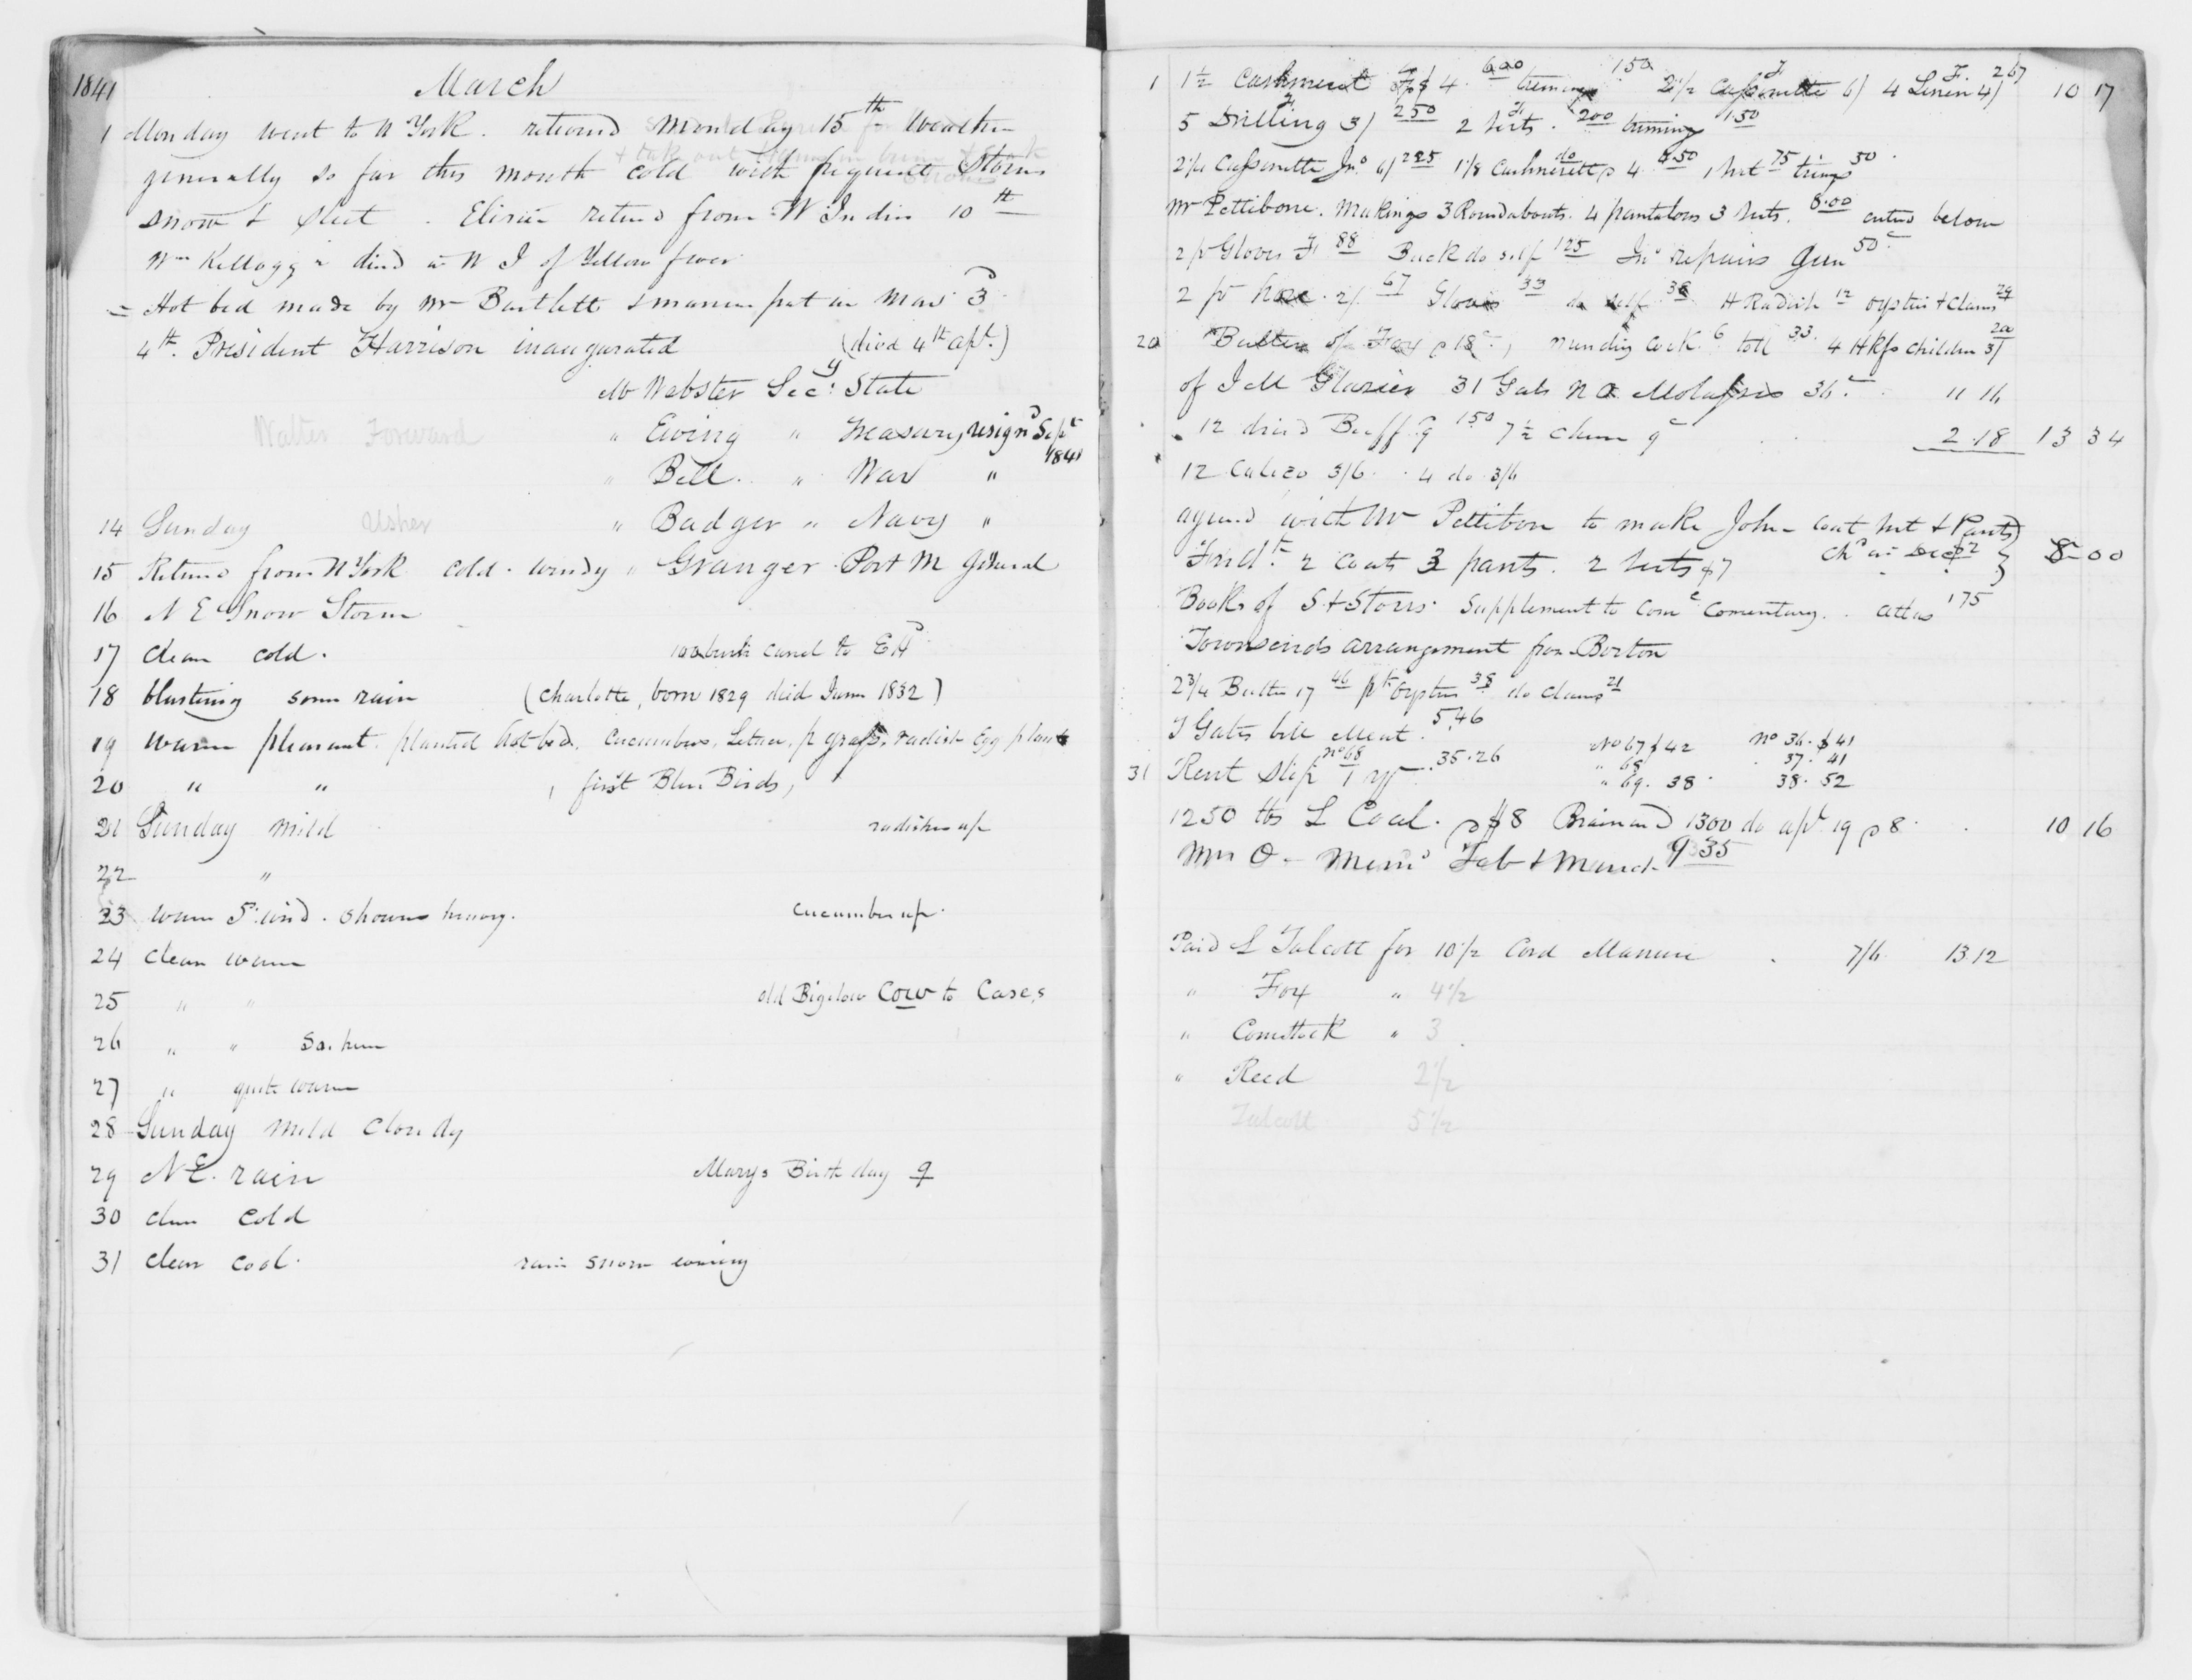 1841 March
1 Monday went to N York. returned Monday 15th Weather
generally so far this month cold with frequent Storms
snow & sleet. return'd from W Indies 10th
Wm Kellogg died in W I of Yellow fever
= Hot bed made by Mr Bartlett & manure put in Mar 3d
4th. President Harrison inaugurated (died 4th apl.)
Mr Webster Secy State
Walter Forward " Ewing " Treasury, resignd Sept 1841
" Bell. " War "
14 Sunday Usher " Badger " Navy "
15 Return'd from N York cold. windy " Granger Post M General
16 N E Snow Storm
17 clear cold. 100 bush to EH
18 blustering some rain (Charlotte, born 1829 died June 1832)
19 warm pleasant. planted hot bed. cucumbers, Lettuce, p grass, radish Egg plants
20 " " first Blue Birds,
21 Sunday mild radishes up
22 "
23 warm S. wind. showers heavy. cucumber up.
24 clear warm
25 " " old Bigelow Cow to Cases
26 " "
27 " quite warm
28 Sunday mild cloudy
29 N E. rain Marys Birth day 9
30 clear cold
31 clear cool. rain snow evening
1 1½ Cashmerett $4. 6.00 trimings 1.50 2½ Cassinette 6/ 4 Linen 4/ 2 67 10 17
5 Drilling 3/ 2 50 2 vests. 2 00 triming 1.50
2¼ Cassinette Jno 6/ 2 25 1 1/8 Cashmerette 4. 4.50 1 vest 75 trimgs 50
Mr Pettibone. Making 3 Roundabouts. 4 pantaloons 3 vests. 8.00 entered below
2 pr Gloves 88 Buck do self 1 25 Jno repairs Gun 50c
2 pr hose. 2/. 67 Gloves 33 do self 38 H Radish 12 oysters & Clams 29
20 Butter of Fox 18c, mending Cock 6 toll 33. 4 Hkfs Children 3/
of J M Glazier 31 Gals N O Molasses 36c 11 16
12 dried Beeff 9 1.50 7½ cheese 9c 2.18 13 34
12 Calico 3/6. 4 do 3/6
agreed with Mr Pettibone to make John coat vest & Pants
Fredk. 2 coats 3 pants. 2 vests $7 8 00
Books of S & Storrs. Supplement to Come Comentary. atlas 1 75
Townsends arrangement from Boston
2¾ Butter 17 46 pk oysters 38 do clams 21
J Gates bill Meat. 5.46
31 Rent Slip No 68 1 yr 35.26 No 67 $42 No 36. $41
" 68 37. 41
" 69. 38 38. 52
1250 lbs L Coal. $8 Brainard 1300 do apl 19 8. 10 16
Mrs O - Feb & March 9 35
Paid L Talcott for 10½ Cord Manure 7/6 13.12
" Fox " 4½
" Comstock " 3
" Reed 2½
Talcott 5½